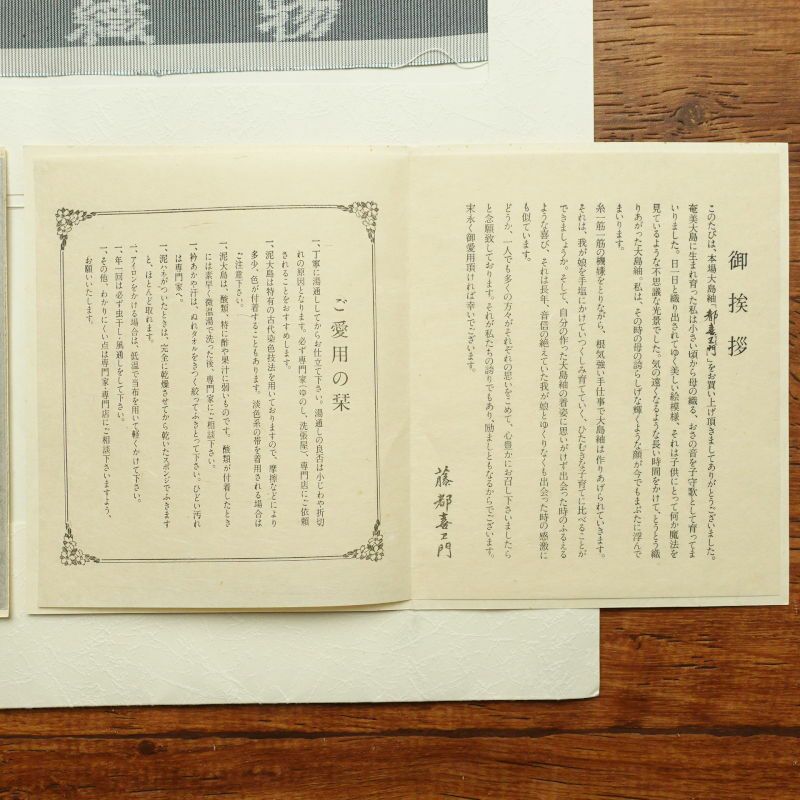 織物
御挨拶
このたびは、本場大島紬「都喜ヱ門」をお買い上げ頂きましてありがとうございました。
奄美大島に生まれ育った私は小さい頃から母の織る、おさの音を子守歌として育ってま
いりました。日一日と織り出されてゆく美しい絵模様、それは子供にとって何か魔法を
見ているような不思議な光景でした。気の遠くなるような長い時間をかけて、とうとう織
りあがった大島紬。私は、その時の母の誇らしげな輝くような顔が今でもまぶたに浮んで
まいります。
糸一筋一筋の機嫌をとりながら、根気強い手仕事で大島紬は作りあげられていきます。
それは、我が娘を手塩にかけていつくしみ育てていく、ひたむきな子育てに比べることが
できましょうか。そして、自分の作った大島紬の着姿に思いがけず出会った時のふるえる
ような喜び、それは長年、音信の絶えていた我が娘とゆくりなくも出会った時の感激に
も似ています。
どうか、一人でも多くの方々がそれぞれの思いをこめて、心豊かにお召し下さいましたら
と念願致しております。それが私たちの誇りでもあり、励ましともなるからでございます。
末永く御愛用頂ければ幸いでございます。
藤都喜ヱ門
ご愛用の栞
一、丁寧に湯通ししてからお仕立て下さい。湯通しの良否は小じわや折切
れの原因となります。必ず専門家(ゆのし、洗張屋)、専門店にご依頼
されることをおすすめします。
一、泥大島は特有の古代染色技法を用いておりますので、摩擦などにより
多少、色が付着することもあります。淡色系の帯を着用される場合は
ご注意下さい。
一、泥大島は、酸類、特に酢や果汁に弱いものです。酸類が付着したとき
には素早く微温湯で洗った後、専門家にご相談下さい。
一、衿あかや汗は、ぬれタオルをきつく絞ってふきとって下さい。ひどい汚れ
は専門家へ。
一、泥ハネがついたときは、完全に乾燥させてから乾いたスポンジでふきます
と、ほとんど取れます。
一、アイロンをかける場合は、低温で当布を用いて軽くかけて下さい。
一、年一回は必ず虫干し・風通しをして下さい。
一、その他、わかりにくい点は専門家・専門店にご相談下さいますよう、
お願いいたします。